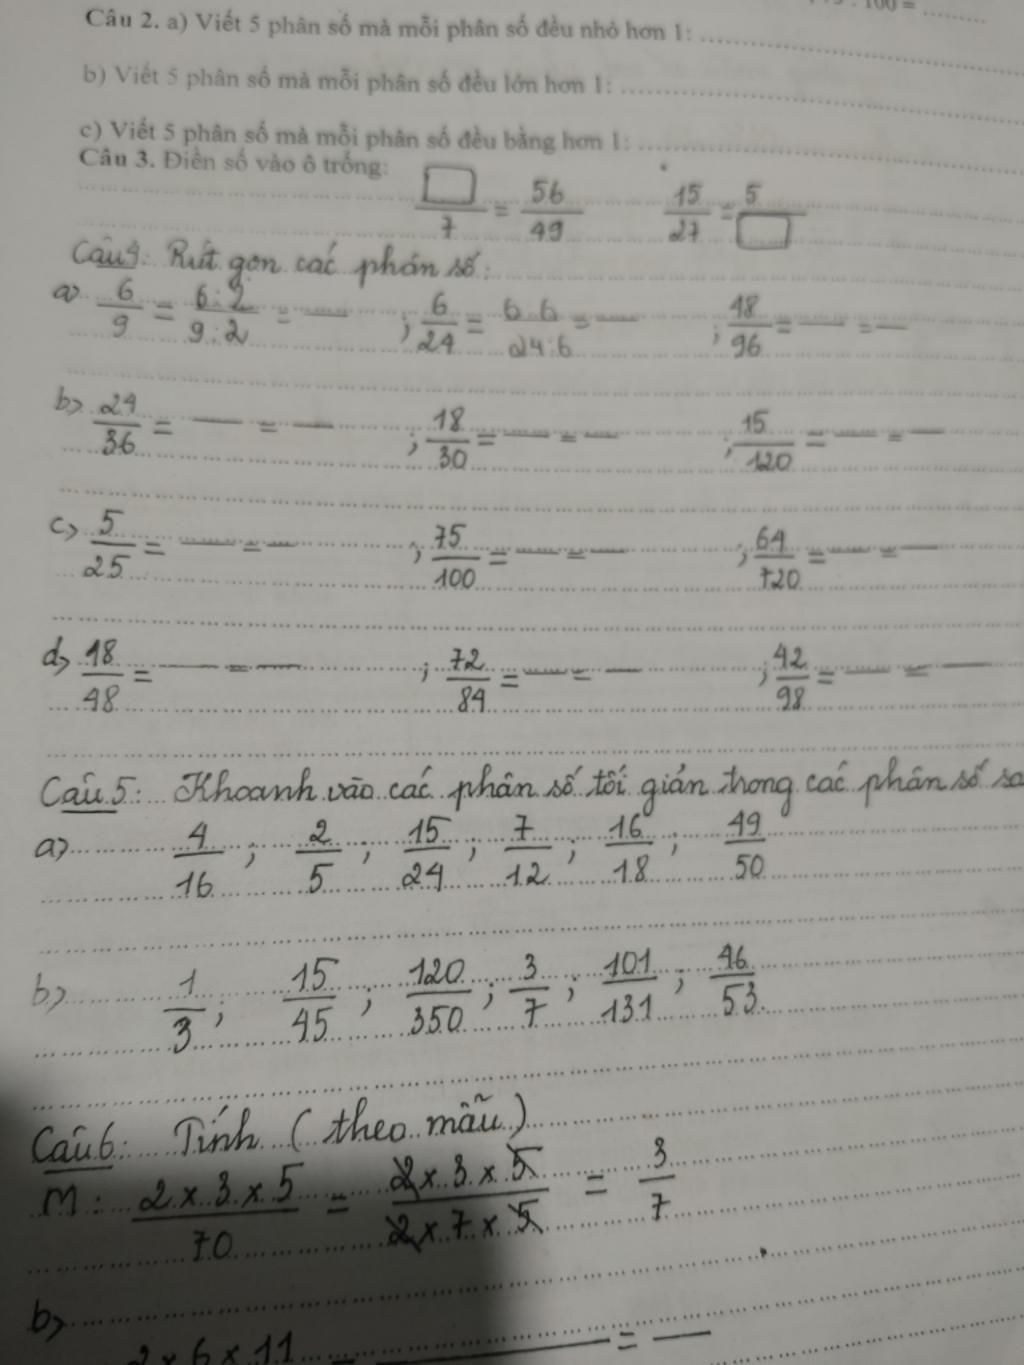 : 100 = ............
Câu 2. a) Viết 5 phân số mà mỗi phân số đều nhỏ hơn 1: ............
b) Viết 5 phân số mà mỗi phân số đều lớn hơn 1: ............
c) Viết 5 phân số mà mỗi phân số đều bằng hơn 1: ............
Câu 3. Điền số vào ô trống:
□/7 = 56/49   15/27 = 5/□
Câu 4: Rút gọn các phân số:
a) 6/9 = 6:2/9:2 = — ; 6/24 = 6 6/24:6 = — ; 48/96 = — = —
b) 24/36 = — = — ; 18/30 = — = — ; 15/120 = — = —
c) 5/25 = — = — ; 75/100 = — = — ; 64/720 = — = —
d) 18/48 = — = — ; 72/84 = — = — ; 42/98 = — = —
Câu 5: Khoanh vào các phân số tối giản trong các phân số sa
a) 4/16 ; 2/5 ; 15/24 ; 7/12 ; 16/18 ; 49/50
b) 1/3 ; 15/45 ; 120/350 ; 3/7 ; 101/131 ; 46/53
Câu 6: Tính (theo mẫu)
M: 2 x 3 x 5/70 = 2 x 3 x 5/2 x 7 x 5 = 3/7
b)
2 x 6 x 11 — = —